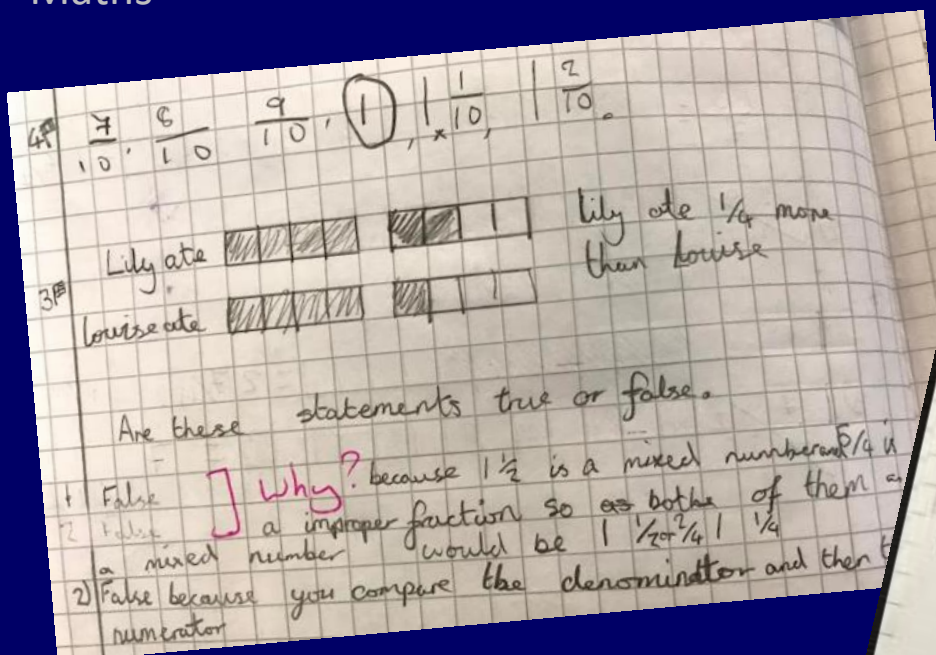 Maths
4 7/10, 8/10, 9/10, 1, 1 1/10, 1 2/10.
Lily ate
lily ate 1/4 more
than Louise
3
Louise ate
Are these statements true or false.
1 False ] Why? because 1 1/2 is a mixed number and 5/4 is
2 False a improper fraction so as bothe of them as
a mixed number would be 1 1/2 or 2/4 1 1/4
2) False because you compare the denominator and then
numerator